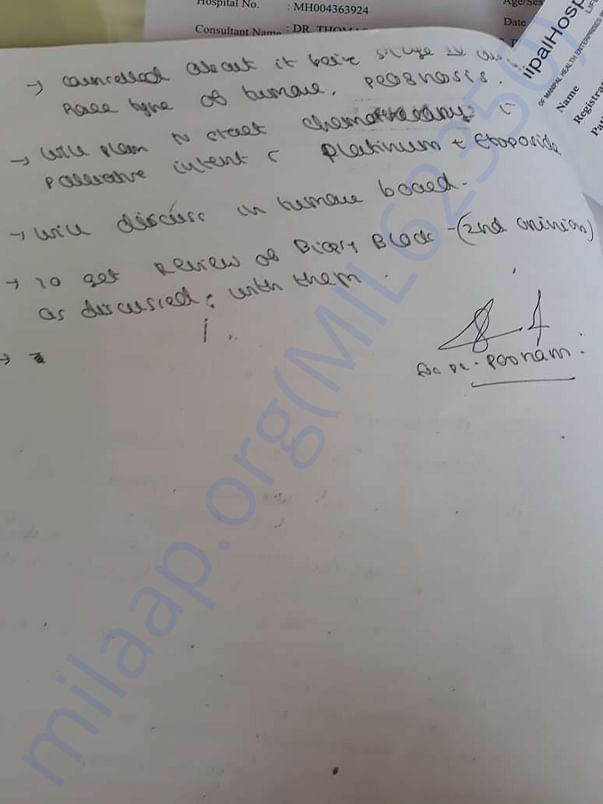 Hospital No. : MH004363924
Consultant Name : DR. THOMAS
Age/Sex
Date
ipalHosp
OF MANIPAL HEALTH ENTERPRISES
Name
Registrat
→ counselled about it being stage IV
Rare type of tumour, prognosis.
→ will plan to start chemotherapy c
Palliative intent c Platinum + Etoposide
→ will discuss in tumour board.
→ To get Review of Biopsy Block - (2nd opinion)
as discussed c with them.
→
Dr. Poonam
milaap.org(MIL62350)